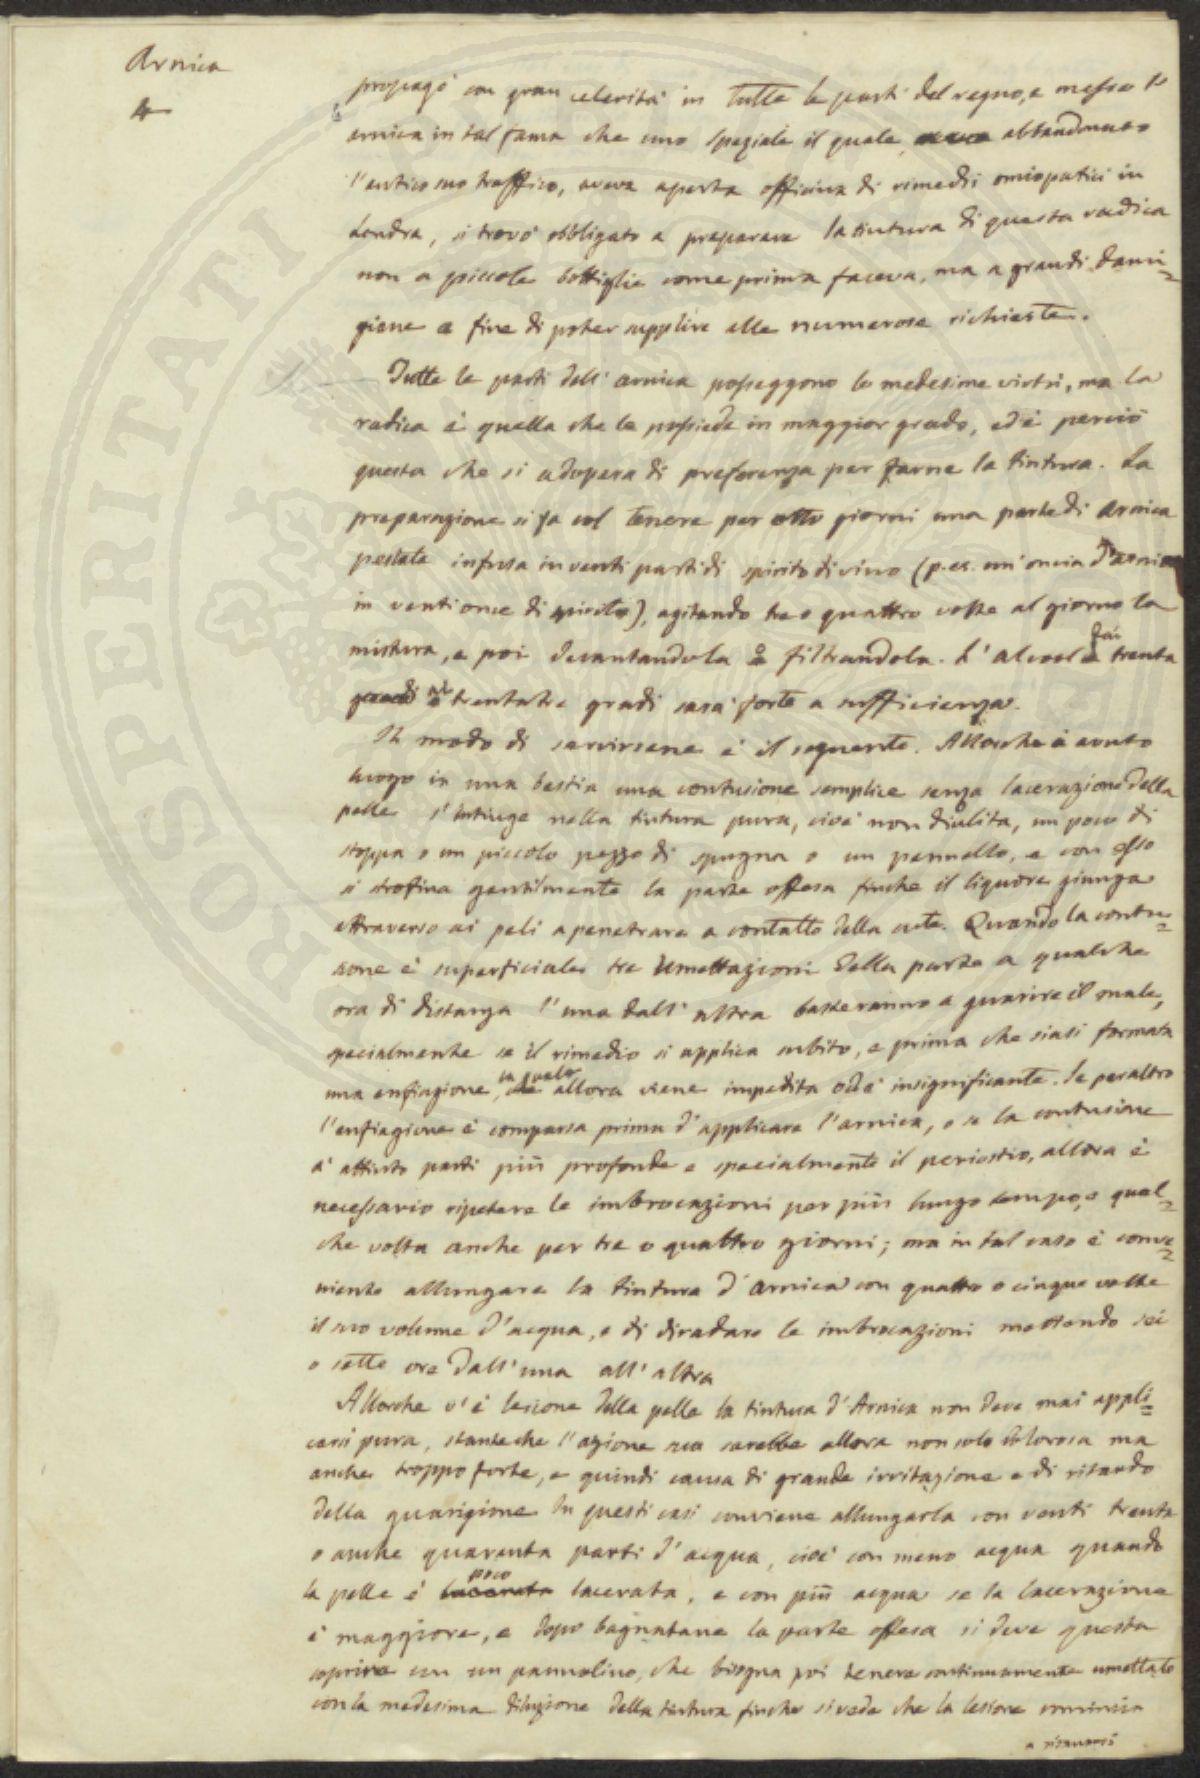 Arnica
4
propagò con gran celerità in tutte le parti del regno, e messe l'
arnica in tal fama che uno speziale il quale, abbandonato
l'antico suo traffico, aveva aperta officina di rimedii omiopatici in
Londra, si trovò obbligato a preparare la tintura di questa radica
non a piccole bottiglie come prima faceva, ma a grandi dami=
giane a fine di poter supplire alle numerose richieste.
Tutte le parti dell'arnica posseggono le medesime virtù, ma la
radica è quella che le possiede in maggior grado, ed è perciò
questa che si adopera di preferenza per farne la tintura. La
preparazione si fa col tenere per otto giorni una parte di Arnica
pestata infusa in venti parti di spirito di vino (p. es. un'oncia d'arnica
in venti once di spirito), agitando tre o quattro volte al giorno la
mistura, e poi decantandola o filtrandola. L'alcool fai trenta
ai trentatre gradi sarà forte a sufficienza.
Il modo di servirsene è il seguente. Allorche à avuto
luogo in una bestia una contusione semplice senza lacerazione della
pelle s'intinge nella tintura pura, cioè non diulita, un poco di
stoppa o un piccolo pezzo di spugna o un pennello, e con esso
si strofina gentilmente la parte offesa finche il liquore giunga
attraverso ai peli a penetrare a contatto della cute. Quando la contu=
sione è superficiale tre umettazioni della parte a qualche
ora di distanza l'una dall'altra basteranno a guarire il male,
specialmente se il rimedio si applica subito, e prima che siasi formata
una enfiagione, la quale allora viene impedita od è insignificante. Se peraltro
l'enfiagione è comparsa prima d'applicare l'arnica, o se la contusione
à attinto parti più profonde e specialmente il periostio, allora è
necessario ripetere le imbrocazioni per più lungo tempo, e qual=
che volta anche per tre o quattro giorni; ma in tal caso è conve=
niente allungare la tintura d'Arnica con quattro o cinque volte
il suo volume d'acqua, e di diradare le imbrocazioni mettendo sei
o sette ore dall'una all'altra
Allorche v'è lesione della pelle la tintura d'Arnica non deve mai appli=
carsi pura, stanteche l'azione sua sarebbe allora non solo dolorosa ma
anche troppo forte, e quindi causa di grande irritazione e di ritardo
della guarigione In questi casi conviene allungarla con venti trenta
o anche quaranta parti d'acqua, cioè con meno acqua quando
la pelle è lacerata poco lacerata, e con più acqua se la lacerazione
è maggiore, e dopo bagnatane la parte offesa si deve questa
coprire con un pannolino, che bisogna poi tenere continuamente umettato
con la medesima diluzione della tintura finche si vede che la lesione comincia
a risanarsi